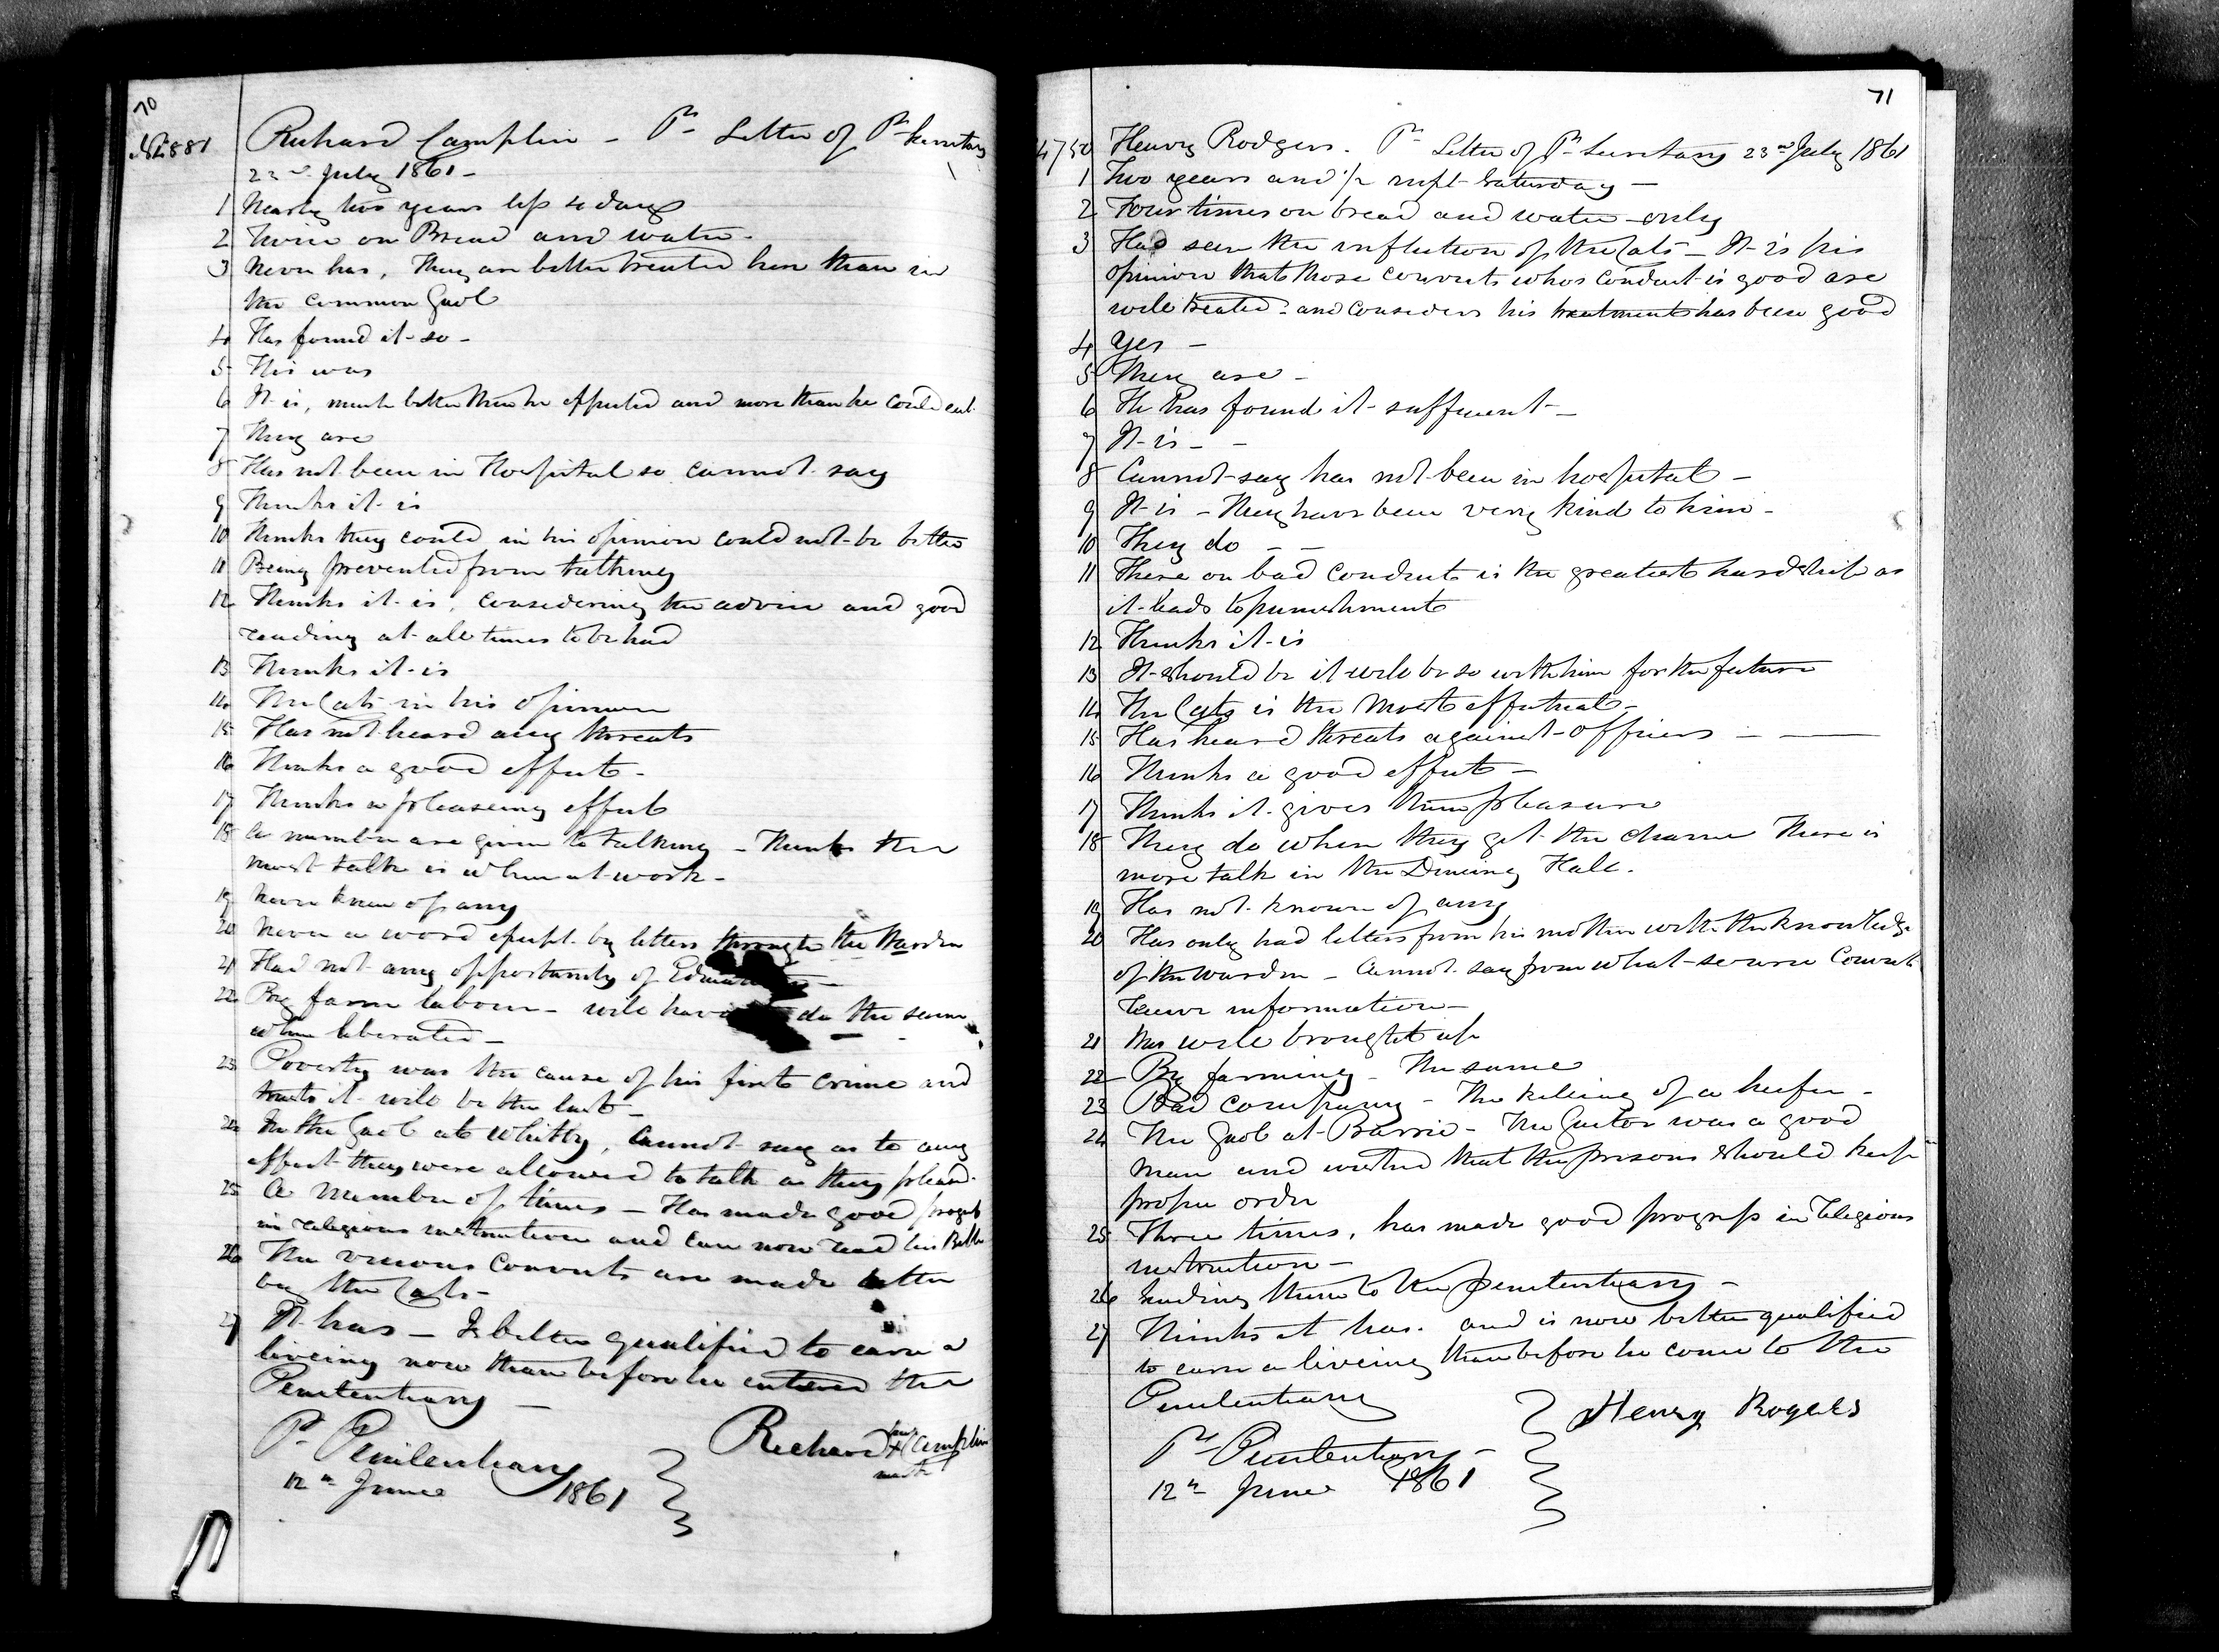 70
Richard Camplin - Pr Letter of Pr Secretary
22nd July 1861 -
1 Nearly two years less 4 days
2 Twice on Bread and water -
3 Never has, They are better treated here than in
the common Gaol
4 Has found it so -
5 His was
6 It is, much better than he expected and more than he could eat
7 They are
8 Has not been in Hospital so cannot say
9 Thinks it is
10 Thinks they could in his opinion could not be better
11 Being prevented from talking
12 Thinks it is, considering the advice and good
reading at all times to be had
13 Thinks it is
14 The Cats in his opinion
15 Has not heard any threats
16 Thinks a good effect -
17 Thinks a pleasing effect
18 A number are given to talking - Thinks the
most talk is when at work -
19 Never knew of any
20 Never a word except by letters through the Warden
21 Had not any opportunity of
22 By farm labour - will have do the same
when liberated -
23 Poverty was the cause of his first crime and
trusts it will be the last -
24 In the Gaol at Whitby, Cannot say as to any
effect they were allowed to talk as they pleased
25 A number of times - Has made good progress
in religious instruction and can now read his Bible
26 The vicious Convicts are made better
by the Cats -
27 It has - Is better qualified to earn a
liveing now than before he entered the
Penitentiary -
Pr Penitentiary
12th June 1861
Richard his X mark Camplin
71
4750 Henry Rodgers. Pr Letter of Pr Secretary 23rd July 1861
1 Two years and 1/2 next Saturday -
2 Four times on bread and water only
3 Has seen the infliction of the Cats - It is his
opinion that those convicts whos conduct is good are
well treated - and considers his treatment has been good
4 Yes -
5 They are -
6 He has found it sufficient -
7 It is - -
8 Cannot say has not been in hospital -
9 It is - They have been very kind to him -
10 They do - -
11 There on bad conduct is the greatest hardship as
it leads to punishment
12 Thinks it is
13 It should be it will be so with him for the future
14 The Cats is the most effectual -
15 Has heard threats against officers - -
16 Thinks a good effect -
17 Thinks it gives them pleasure
18 They do when they get the chance There is
more talk in the Dineing Hall.
19 Has not known of any
20 Has only had letters from his mother with the knowledge
of the warden - Cannot say from what source Convicts
receive information -
21 Was well brought up
22 By farming - The same
23 Bad company - The killing of a heifer -
24 The Gaol at Barrie - The Gaeler was a good
man and wished that the prisons should keep in
proper order
25 Three times, has made good progress in religious
instruction -
26 Sending them to the penitentiary -
27 Thinks it has. and is now better qualified
to earn a liveing than before he come to the
Penitentiary
Pr Penitentiary -
12th June 1861
Henry Rogers